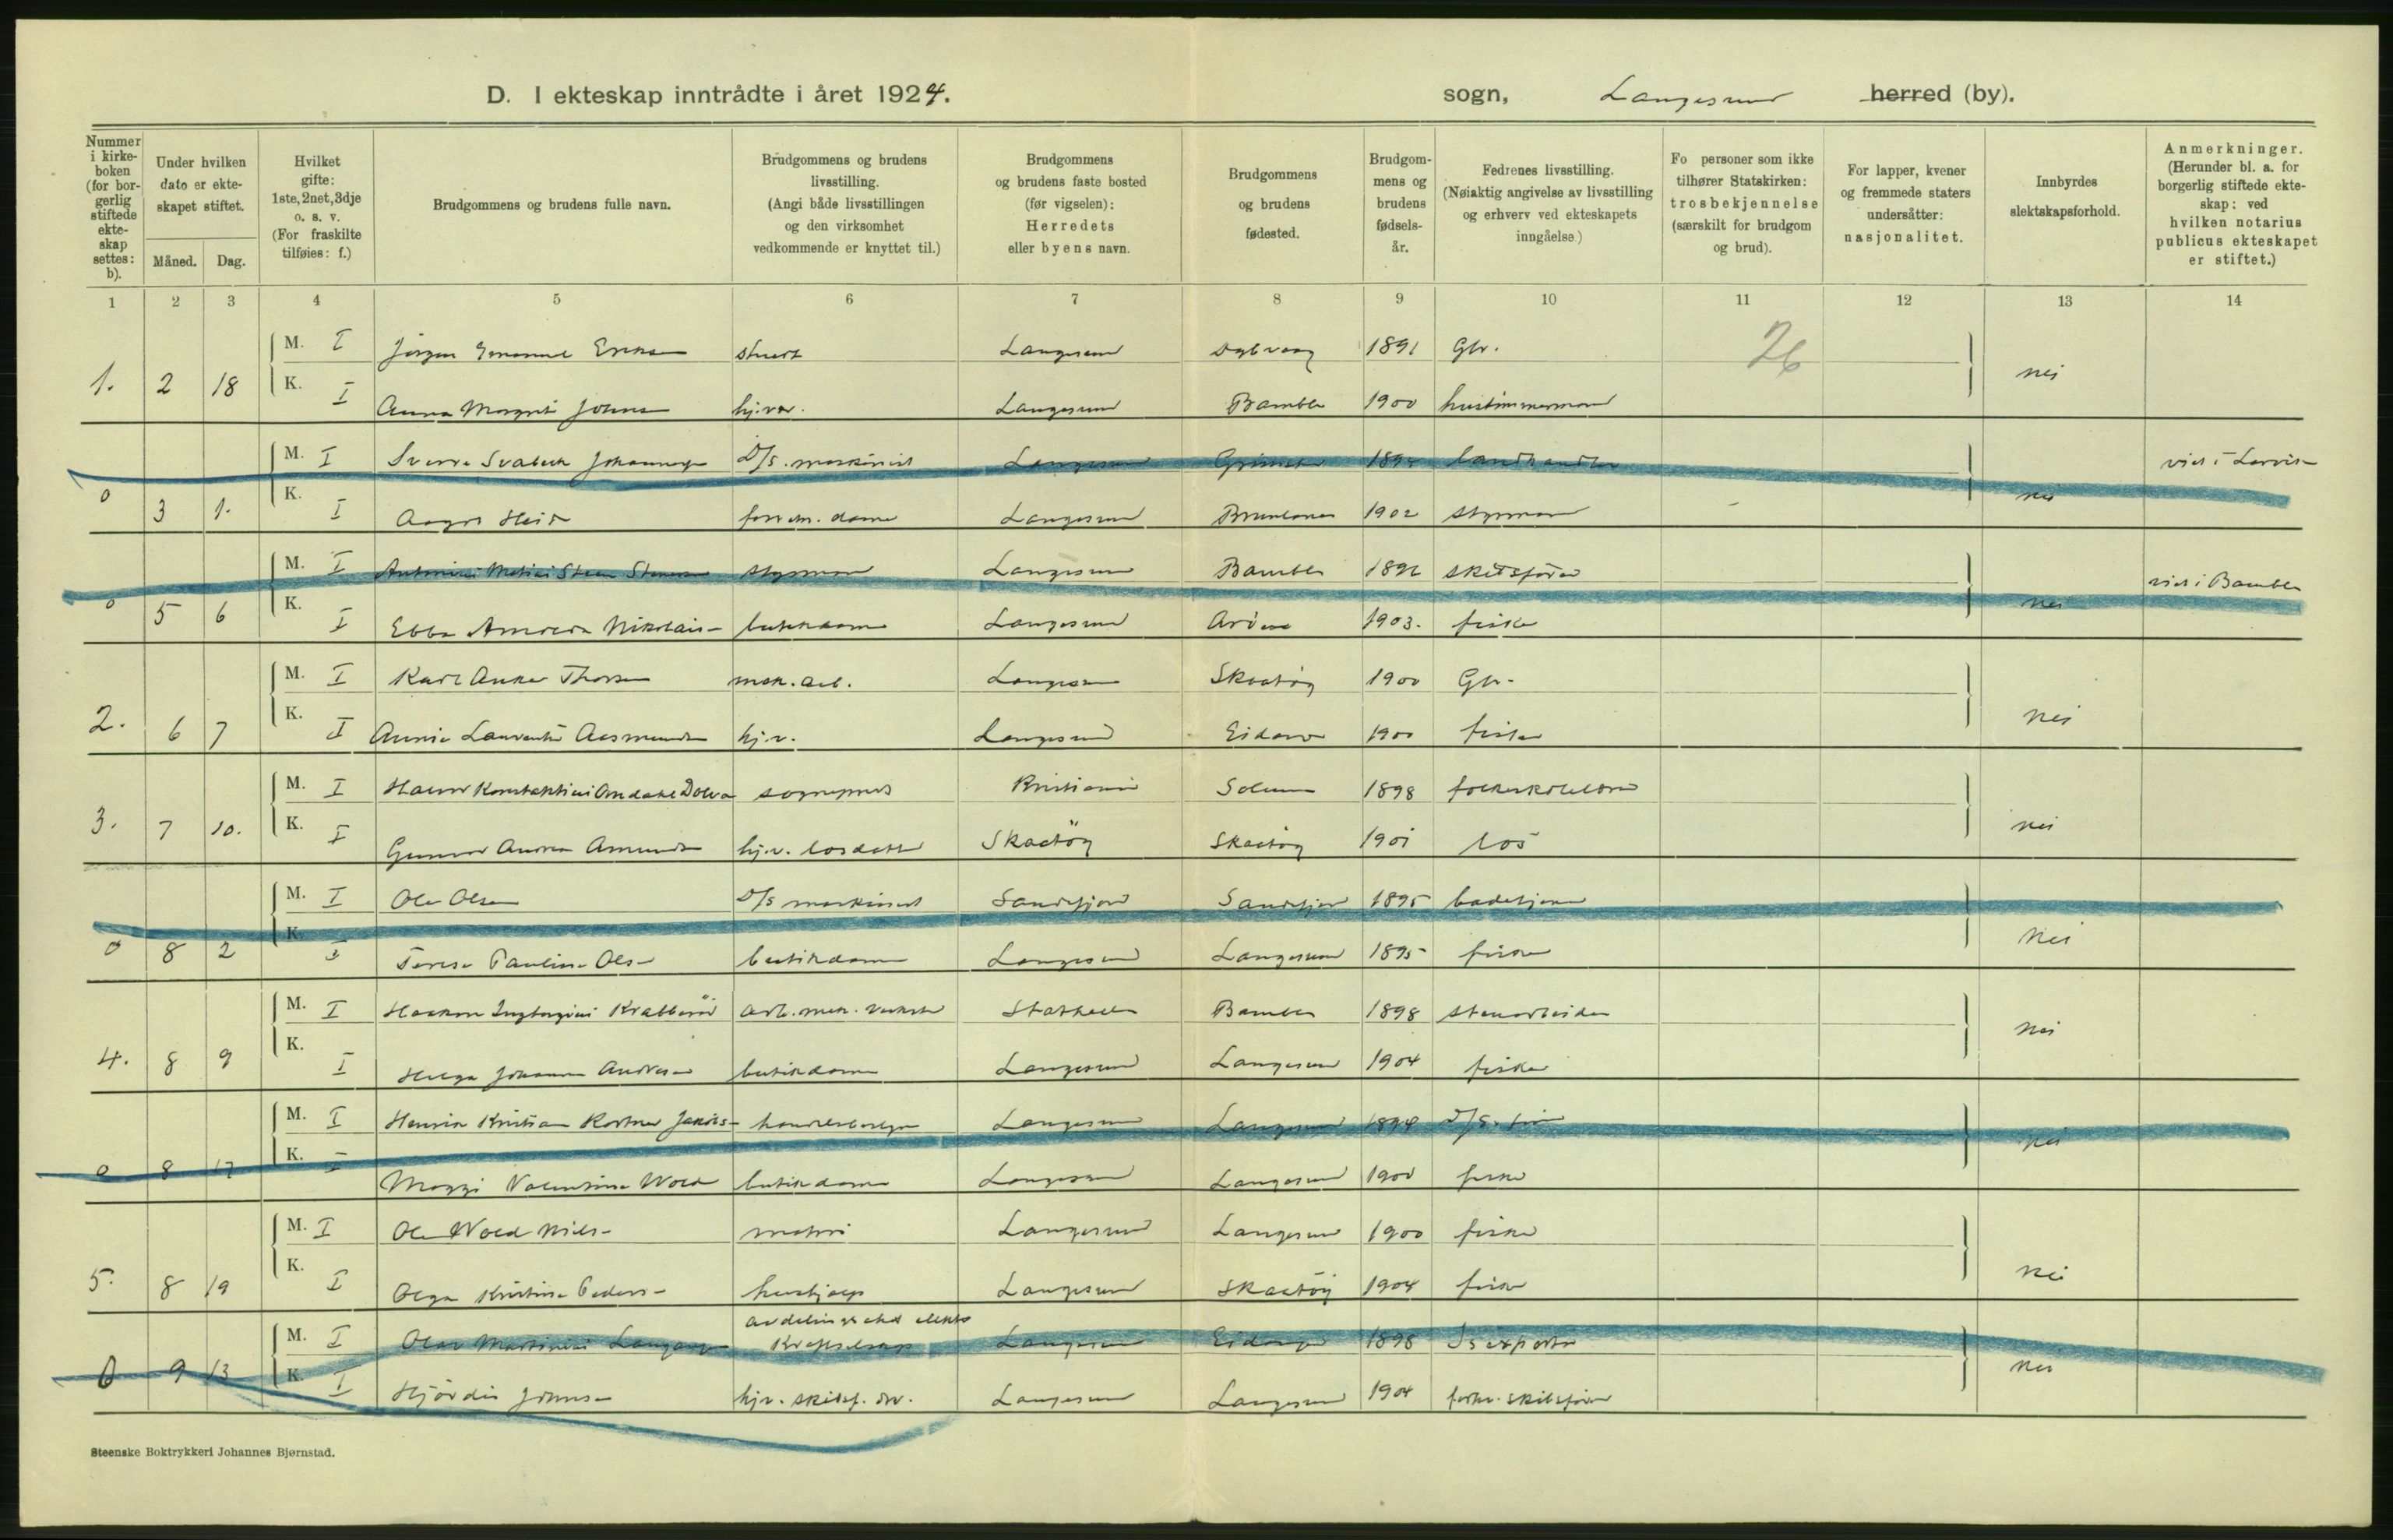 D. I ekteskap inntrådte i året 1924.
sogn, Langesund herred (by).
Nummer i kirkeboken (for borgerlig stiftede ekteskap settes: b).
Under hvilken dato er ekteskapet stiftet.
Måned. Dag.
Hvilket gifte: 1ste, 2net, 3dje o. s. v. (For fraskilte tilføies: f.)
Brudgommens og brudens fulle navn.
Brudgommens og brudens livsstilling. (Angi både livsstillingen og den virksomhet vedkommende er knyttet til.)
Brudgommens og brudens faste bosted (før vigselen): Herredets eller byens navn.
Brudgommens og brudens fødested.
Brudgommens og brudens fødselsår.
Fedrenes livsstilling. (Nøiaktig angivelse av livsstilling og erhverv ved ekteskapets inngåelse.)
Fo personer som ikke tilhører Statskirken: trosbekjennelse (særskilt for brudgom og brud).
For lapper, kvener og fremmede staters undersåtter: nasjonalitet.
Innbyrdes slektskapsforhold.
Anmerkninger. (Herunder bl. a. for borgerlig stiftede ekteskap: ved hvilken notarius publicus ekteskapet er stiftet.)
1 2 3 4 5 6 7 8 9 10 11 12 13 14
M. I Jørgen Emanuel Eriksen stuert Langesund Dybvaag 1891 Gbr. 26
1. 2 18 K. I Anna Margrit Johnsen hj.var. Langesund Bamble 1900 hustimmermann nei
M. I Sverre Svabeck Johannesen D/S. maskinist Langesund Grimstad landhandler vid i Larvik
0 3 1. K. I Aagot Heid Langesund Brunlanes 1902 styrmann nei
M. I Steen styrmann Langesund Bamble skibsfører vid i Bamble
0 5 6 K. I Ebba Nikolais- butikdame Langesund 1903. fisker nei
M. I Karl Anker Thorsen mek. arb. Langesund Skaatøy 1900 Gbr.
2. 6 7 K. I Annie Laurentse Aasmundsen hj.v. Langesund Eidanger 1900 fisker nei
M. I sogneprest Kristiania Solum 1898 folkeskolelærer
3. 7 10. K. I Gunvor Andrea Amundsen hj.v. losdatter Skaatöy Skaatöy 1901 los nei
M. I Ole Olsen D/S maskinist Sandefjord Sandefjord 1895 badetjener
0 8 2 K. I Pauline Olsen butikdame Langesund Langesund 1895 fisker nei
M. I Haakon Krabberöd arb. mek. verksted Stathelle Bamble 1898 stenarbeider
4. 8 9 K. I Helga Johanne Andresen butikdame Langesund Langesund 1904 fisker nei
M. I Henrik Kristian Jakobs- Langesund Langesund D/S.
0 8 17 K. I Valentine Wold butikdame Langesund Langesund 1900 fisker nei
M. I Ole Wold Niels- matros Langesund Langesund 1900 fisker
5. 8 19 K. I Olga Kristine Peders- hushjelp Langesund Skaatöy 1904 fisker nei
avdelingschef elektr.
M. I Olav Martinius Langangen Kraftselskap Langesund Eidanger 1898 Iseksportør
0 9 13 K. I Hjördis Johnsen hj.v. skibsf. dtr. Langesund Langesund 1904 forhv. skibsfører nei
Steenske Boktrykkeri Johannes Bjørnstad.